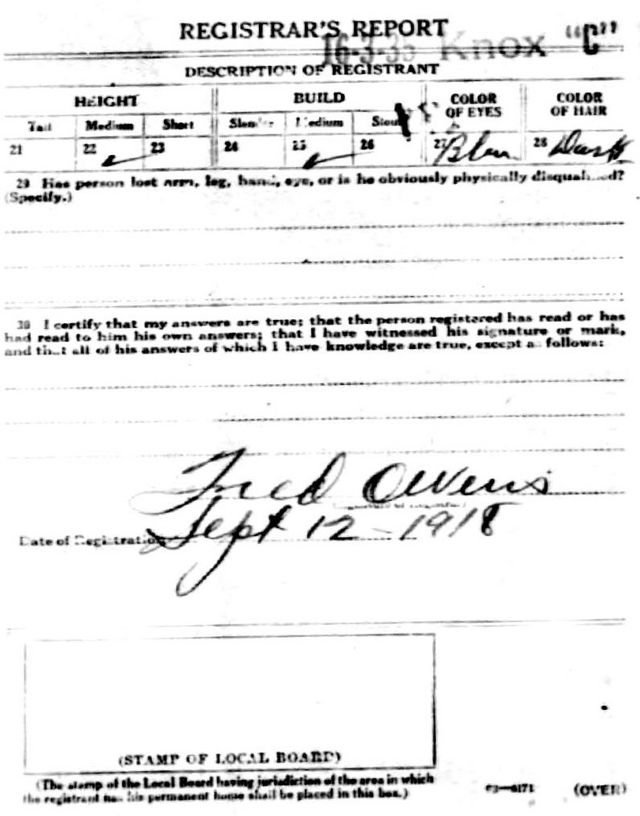 REGISTRAR'S REPORT
16-3-35 Knox "C"
DESCRIPTION OF REGISTRANT
HEIGHT BUILD COLOR OF EYES COLOR OF HAIR
Tall Medium Short Slender Medium Stout
21 22 23 24 25 26 27 Blue 28 Dark
29 Has person lost arm, leg, hand, eye, or is he obviously physically disqualified?
(Specify.)
30 I certify that my answers are true; that the person registered has read or has
had read to him his own answers; that I have witnessed his signature or mark,
and that all of his answers of which I have knowledge are true, except as follows:
Fred Owens
Date of Registration Sept 12 - 1918
(STAMP OF LOCAL BOARD)
(The stamp of the Local Board having jurisdiction of the area in which
the registrant has his permanent home shall be placed in this box.)
03—6171 (OVER)